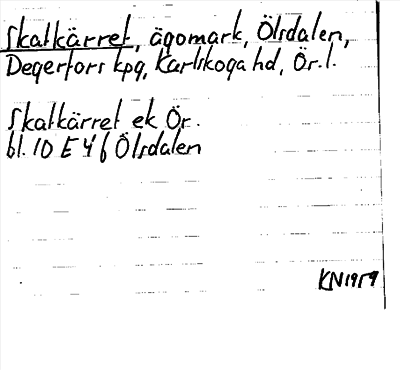 Skalkärret, ägomark, Ölsdalen,
Degerfors kpg, Karlskoga hd, Ör. l.
Skalkärret ek Ör.
bl. 10 E 4 b Ölsdalen
KN 1959